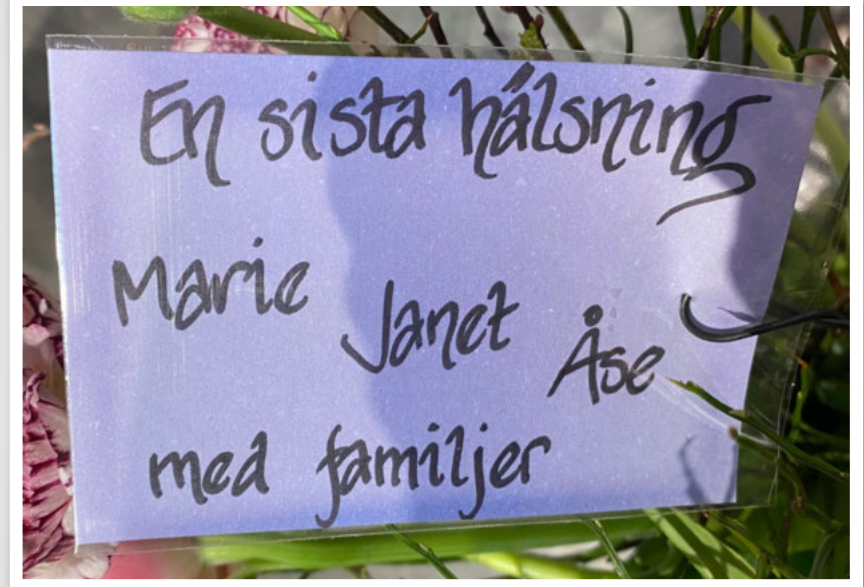 En sista hälsning
Marie Janet Åse
med familjer